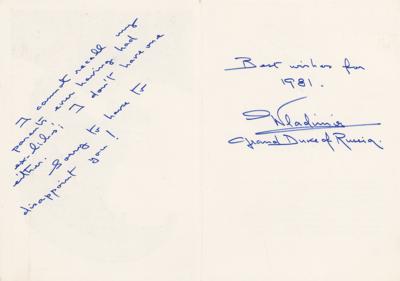 I cannot recall my
parents ever having had
ex-libris; I don't have one
either.
Sorry to have to
disappoint you!
Best wishes for
1981.
Vladimir
Grand Duke of Russia.